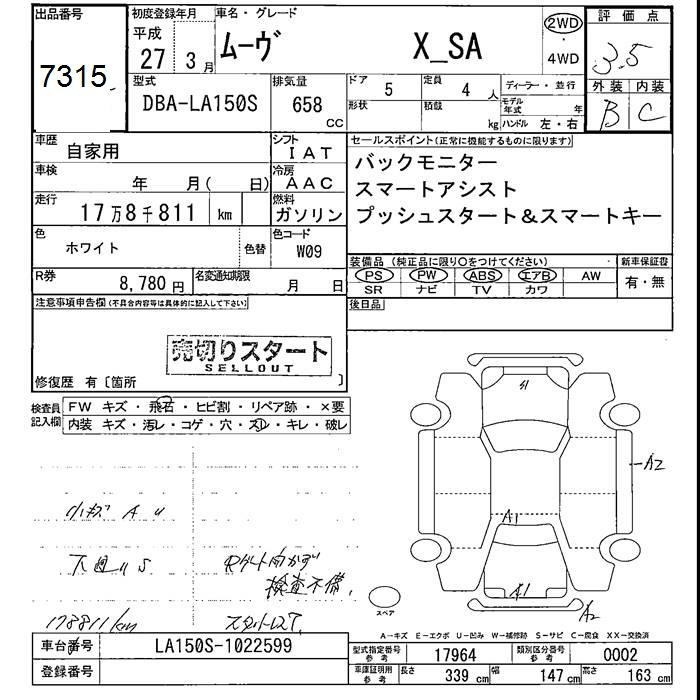 出品番号
7315
初度登録年月
平成
27 3月
車名・グレード
ムーヴ X_SA
2WD
4WD
評価点
3.5
外装 内装
B C
型式
DBA-LA150S
排気量
658 CC
ドア 5
形状
定員 4 人
積載 kg
ディーラー・並行
モデル年式 年
ハンドル 左・右
車歴 自家用
シフト IAT
車検 年 月( 日)
冷房 AAC
走行 17万8千811 km
燃料 ガソリン
色 ホワイト 色替
色コード W09
R券 8,780円
名変通知期限 月 日
セールスポイント(正常に機能するものに限ります)
バックモニター
スマートアシスト
プッシュスタート&スマートキー
装備品 (純正品に限り○をつけてください)
PS PW ABS エアB AW
SR ナビ TV カワ
新車保証書
有・無
後日品
注意事項申告欄(不具合内容等は具体的に記入して下さい)
売切りスタート
SELLOUT
修復歴 有〔箇所 〕
検査員記入欄
FW キズ・飛石・ヒビ割・リペア跡・×要
内装 キズ・汚レ・コゲ・穴・スレ・キレ・破レ
小キズ A U
下廻り S
178811km
検査不備
S1
A2
A1
A1
A2
スペア
A-キズ E-エクボ U-凹み W-補修跡 S-サビ C-腐食 XX-交換済
車台番号 LA150S-1022599
登録番号
型式指定番号 参考 17964
類別区分番号 参考 0002
車庫証明用 参考 長さ 339 cm 幅 147 cm 高さ 163 cm